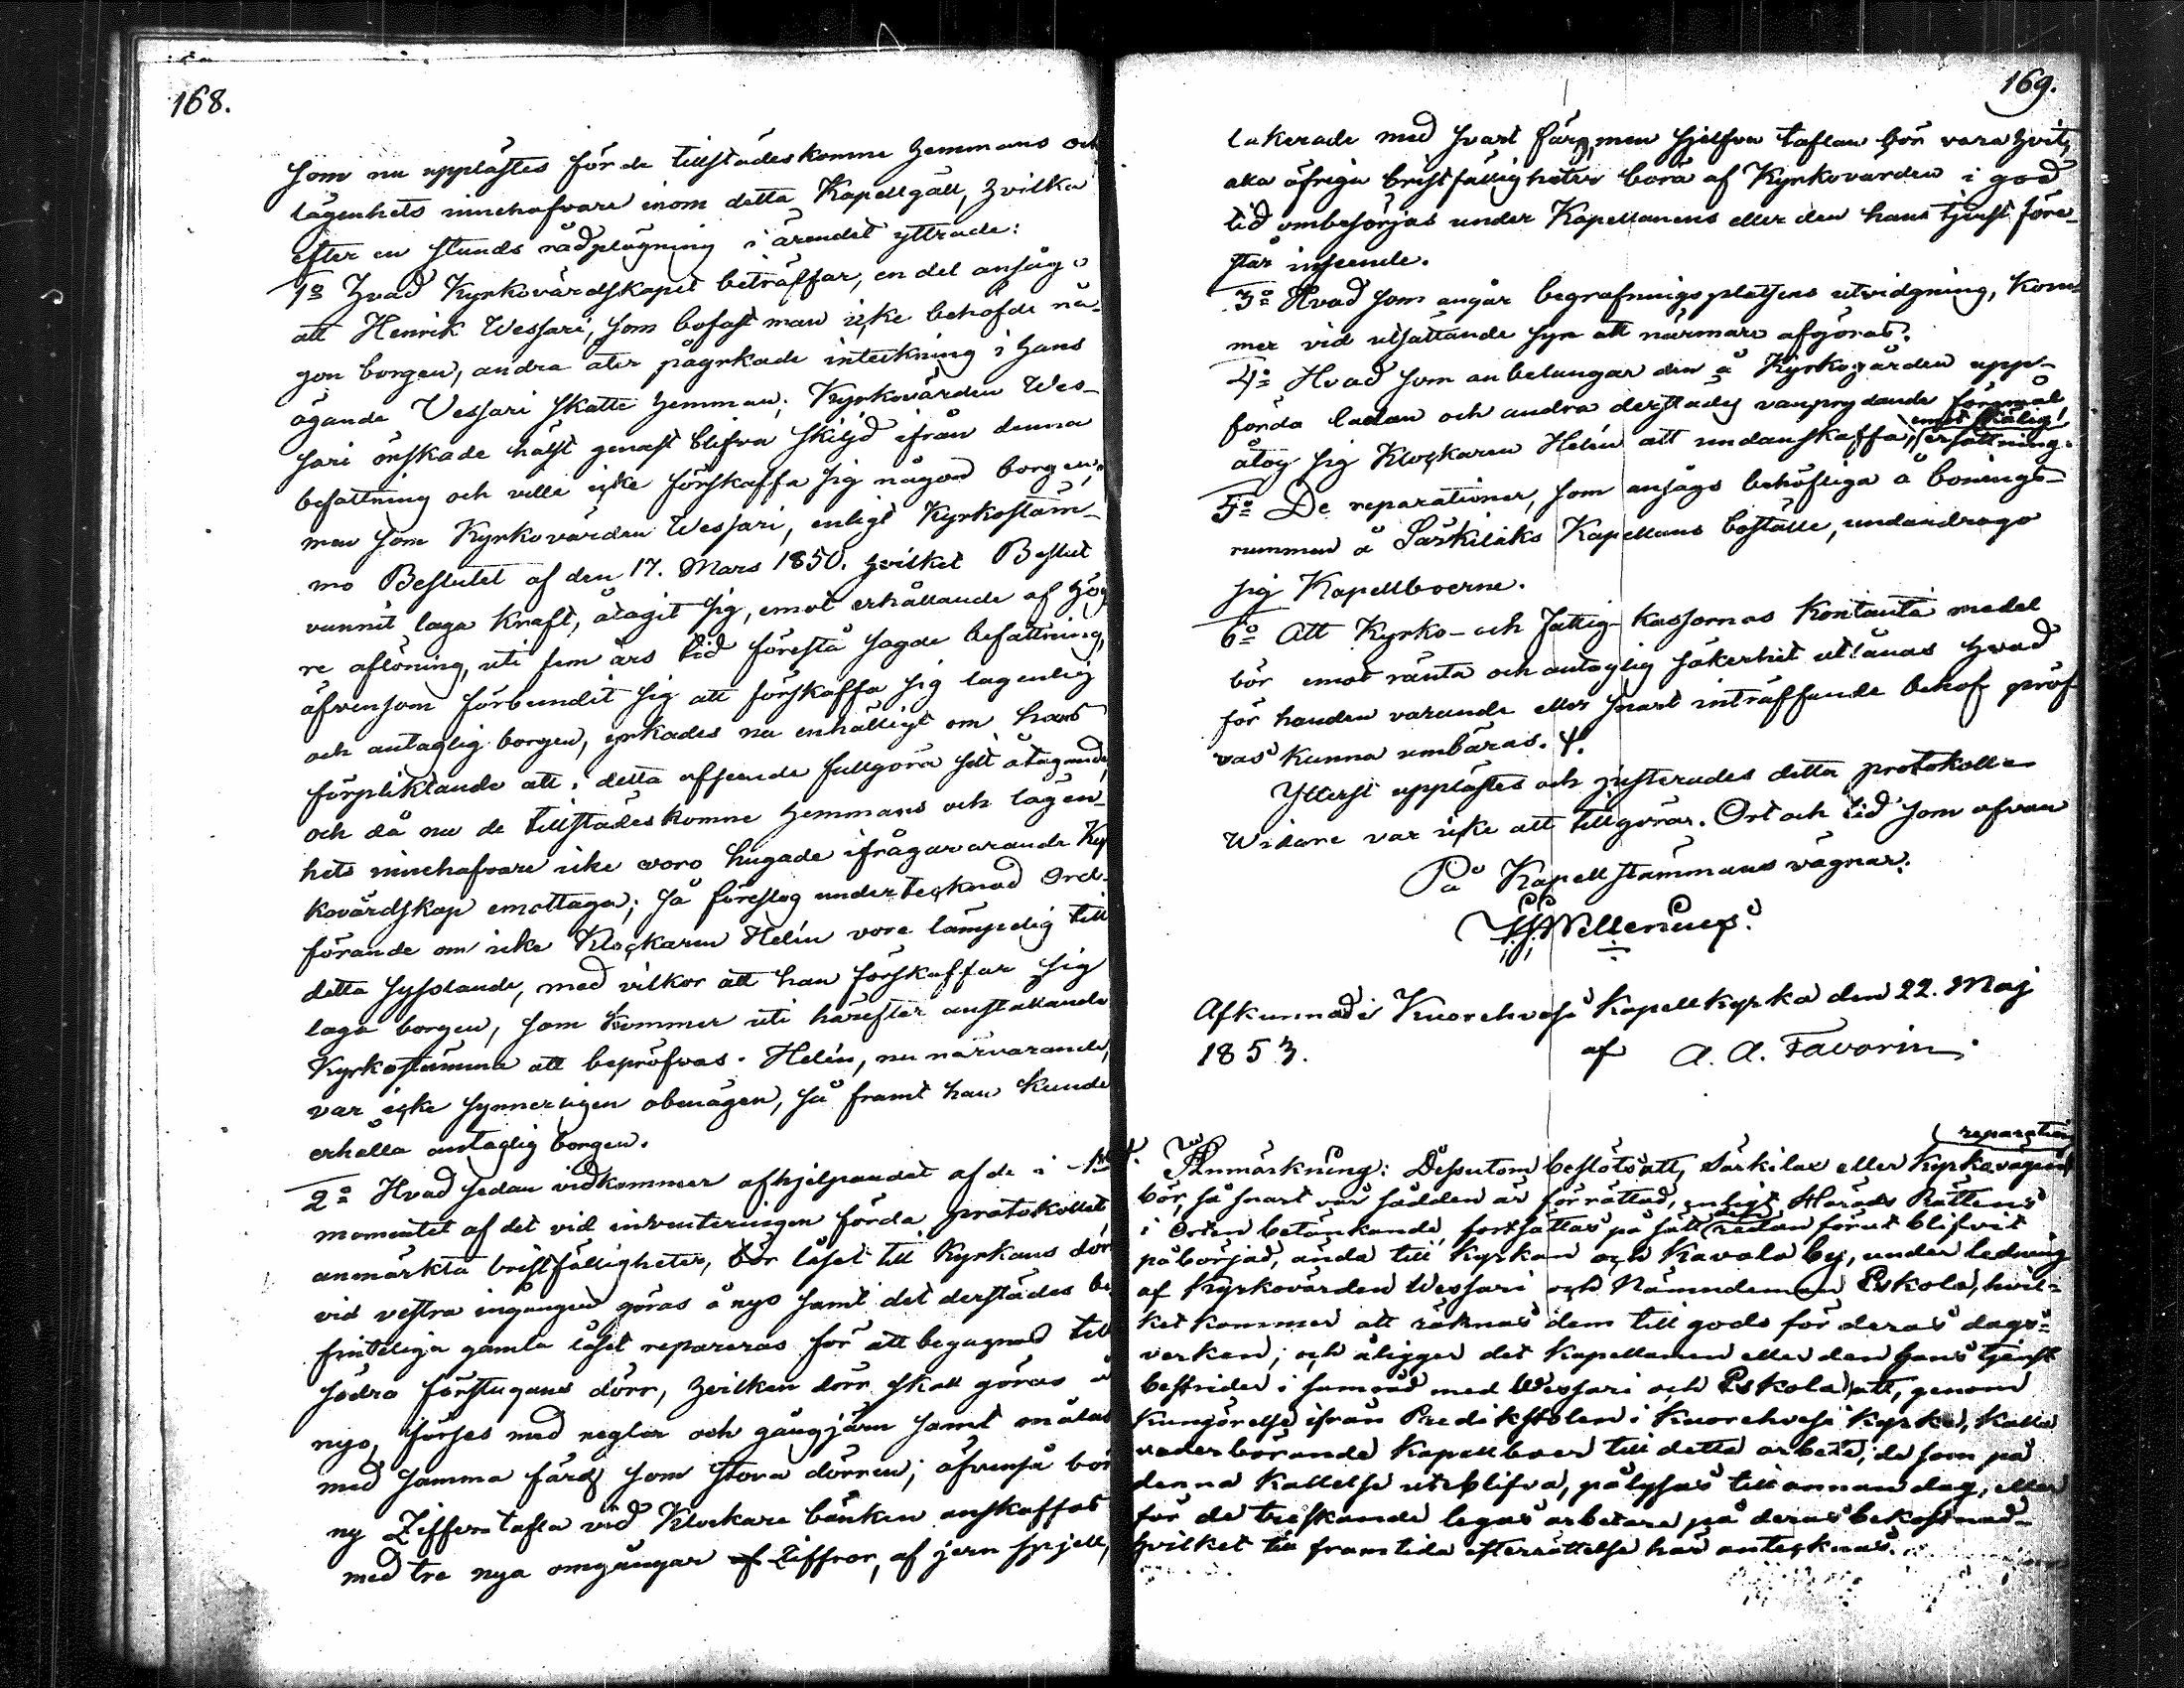 168.
som nu upplästes för de tillstädeskomne hemmans och
lägenhets innehafvare inom detta Kapellgäll, hvilka
efter en stunds rådplägning i ärendet yttrade:
1o Hvad Kyrkovärdskapet beträffar, en del ansåg
att Henrik Wessari, som bofast man icke behöfde nå-
gon borgen, andra åter påyrkade inteckning i hans
ägande Vessari skatte hemman; Kyrkovärden Wes-
sari önskade hälst genast blifva skiljd ifrån denna
befattning och ville icke förskaffa sig någon borgen;
men som Kyrkovärden Wessari, enligt Kyrkostäm-
mo Beslutet af den 17. Mars 1850. hvilket Beslut
vunnit laga kraft, åtagit sig, emot erhållande af hög
re aflöning, uti fem års tid förestå sagde befattning,
äfvensom förbundit sig att förskaffa sig lagenlig
och antaglig borgen, yrkades nu enhälligt om hans
förpliktande att i detta afseende fullgöra sitt åtagande,
och då nu de tillstädeskomne hemmans och lägen-
hets innehafvare icke voro hugade ifrågavarande Kyr
kovärdskap emottaga; så föreslog undertecknad Ord-
förande om icke Klockaren Helin vore lämpelig till
detta sysslande, med vilkor att han förskaffar sig
laga borgen, som kommer uti härefter anställande
Kyrkostämma att bepröfvas. Helin, nu närvarande,
var icke synnerligen obenägen, så framt han kunde
erhålla antaglig borgen.
2o Hvad sedan vidkommer afhjelpandet af de i 1sta
momentet af det vid inventeringen förda protokollet
anmärkta bristfälligheter, bör låset till Kyrkans dörr
vid vestra ingången göras å nyo samt det derstädes be
finteliga gamla låset repareras för att begagnas till
södra förstugans dörr, hvilken dörr skall göras å
nyo, förses med reglar och gångjärn samt målas
med samma färg som stora dörren; äfvenså bör
ny Ziffertafla vid Klockare bänken anskaffas
med tre nya omgångar af Ziffror, af jern spjell,
169.
lakerade med svart färg, men sjelfva taflan bör vara hvit,
alla öfriga bristfälligheter böra af Kyrkovärden i god
tid ombesörjas under Kapellanens eller den hans tjenst före-
står inseende.
3o Hvad som angår begrafningsplatsens utvidgning, kom-
mer vid utsättande syn att närmare afgöras.
4o Hvad som anbelangar den å Kyrkogården upp-
förda ladan och andra derstädes vanprydande föremål
emot skälig
åtog sig Klockaren Helin att undanskaffa, ersättning.
5o De reparationer, som ansågs behöfliga å bonings-
rummen å Särkilaks Kapellans boställe, undandrogo
sig Kapellboerne.
6o Att Kyrko- och Fattig-kassornas kontanta medel
bör emot ränta och antaglig säkerhet utlånas hvad
för handen varande eller snart inträffande behof pröf
vas kunna umbäras.
Ytterst upplästes och justerades detta protokoll.
Widare var icke att tillgöra. Ort och tid som ofvan
På Kapellstämmans vägnar:
Afkunnad i Kuorehvesi Kapellkyrka den 22. Maj
1853. af A. A. Favorin.
reparation
Anmärkning: Dessutom beslöts att, Särkilax eller Kyrkovägens
bör, så snart vår sådden är förrättad, enligt Härads Rättens
i Orten betänkande, fortsättas på sätt redan förut blifvit
påbörjad, ända till Kyrkan och Kavala by, under ledning
af Kyrkovärden Wessari och Nämndeman Eskola, hvil-
ket kommer att räknas dem till godo för deras dags-
verken; och åligger det Kapellanen eller den hans tjenst
bestrider i samråd med Wessari och Eskola, att, genom
kungörelse ifrån Predikstolen i Kuorehvesi Kyrka, kalla
vederbörande kapellboer till detta arbete; de som på
denna kallelse uteblifva, pålyses till annan dag, eller
för de treskande legas arbetare på deras bekostnad-
hvilket till framtida efterrättelse här antecknas.